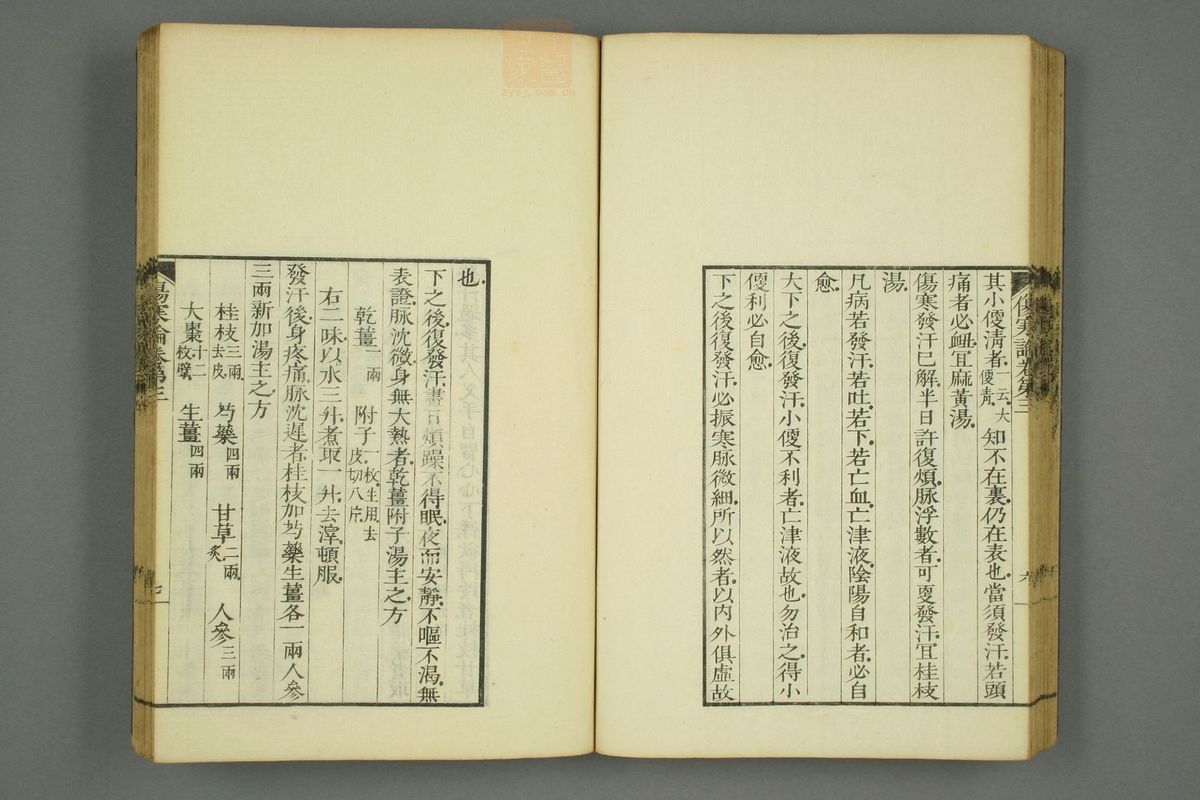 傷寒論卷第三
六
其小便清者一云大便青知不在裏仍在表也當須發汗若頭
痛者必衄宜麻黃湯
傷寒發汗已解半日許復煩脉浮數者可更發汗宜桂枝
湯
凡病若發汗若吐若下若亡血亡津液陰陽自和者必自
愈
大下之後復發汗小便不利者亡津液故也勿治之得小
便利必自愈
下之後復發汗必振寒脉微細所以然者以內外俱虛故
也
下之後復發汗晝日煩躁不得眠夜而安靜不嘔不渴無
表證脉沈微身無大熱者乾薑附子湯主之方
乾薑一兩 附子一枚生用去皮切八片
右二味以水三升煮取一升去滓頓服
發汗後身疼痛脉沈遲者桂枝加芍藥生薑各一兩人參
三兩新加湯主之方
桂枝三兩去皮 芍藥四兩 甘草二兩炙 人參三兩
大棗十二枚擘 生薑四兩
傷寒論卷第三
七
中醫家
zysj.com.cn